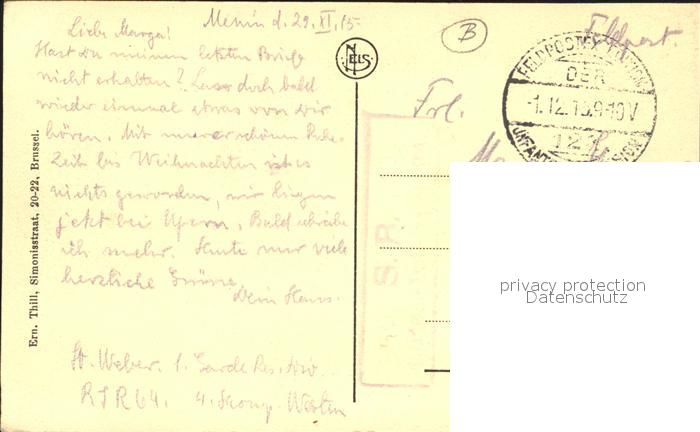 Menin d. 29. XI. 15.
Liebe Marga!
Hast Du meinen letzten Brief
nicht erhalten? Lasse doch bald
wieder einmal etwas von Dir
hören. Mit unserer schönen Ruhe-
Zeit bis Weihnachten ist es
nichts geworden, wir liegen
jetzt bei Ypern. Bald schreibe
ich mehr. Heute nur viele
herzliche Grüsse
Dein Hans.
Weber. 1. Garde Res. Div.
R I R 64. 4. Komp. Westen
Ern. Thill, Simonisstraat, 20-22, Brussel.
NELS
B
Feldpost.
Frl.
FELDPOSTEXPEDITION
DER
-1.12.15.9-10V
123
INFANTERIE DIVISION
S.R.
privacy protection
Datenschutz